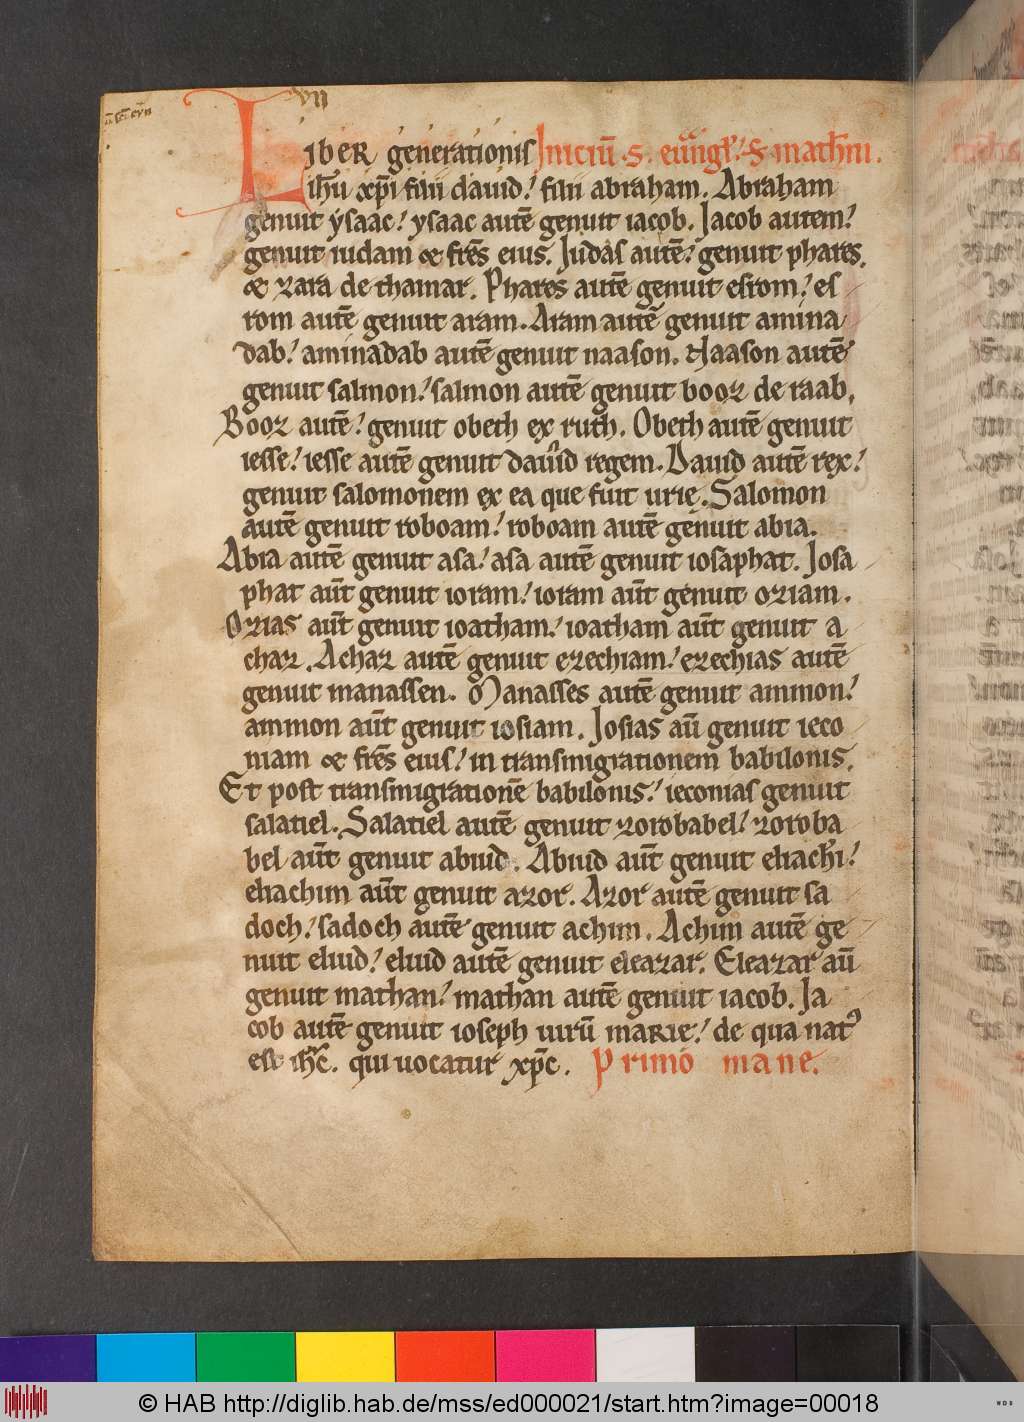 vii
Liber generationis Iniciū · s · euāngł · s · mathm̄ .
ihū xp̄i filii dauid / filii abraham . Abraham
genuit ysaac / ysaac autē genuit iacob . Jacob autem /
genuit iudam & frēs eius . Judas autē / genuit phares ,
& zara de thamar . Phares autē genuit esrom / es
rom autē genuit aram . Aram autē genuit amina
dab / aminadab autē genuit naason . Naason autē
genuit salmon / salmon autē genuit booz de raab ,
Booz autē / genuit obeth ex ruth . Obeth autē genuit
iesse / iesse autē genuit dauid regem . Dauid autē rex /
genuit salomonem ex ea que fuit urie . Salomon
autē genuit roboam / roboam autē genuit abia .
Abia autē genuit asa / asa autē genuit iosaphat . Josa
phat aūt genuit ioram / ioram aūt genuit oziam .
Ozias aūt genuit ioatham / ioatham aūt genuit a
chaz . Achaz autē genuit ezechiam / ezechias autē
genuit manassen . Manasses autē genuit ammon /
ammon aūt genuit iosiam . Josias aū genuit ieco
niam & frēs eius / in transmigrationem babilonis .
Et post transmigrationē babilonis / ieconias genuit
salatiel . Salatiel autē genuit zorobabel / zoroba
bel aūt genuit abiud . Abiud aūt genuit eliachī /
eliachim aūt genuit azor . Azor autē genuit sa
doch / sadoch autē genuit achim . Achim autē ge
nuit eliud / eliud autē genuit eleazar . Eleazar aū
genuit mathan / mathan autē genuit iacob . Ja
cob autē genuit ioseph uirū marie / de qua natꝰ
est ihc̄ . qui uocatur xp̄c . Primo mane .
© HAB http://diglib.hab.de/mss/ed000021/start.htm?image=00018